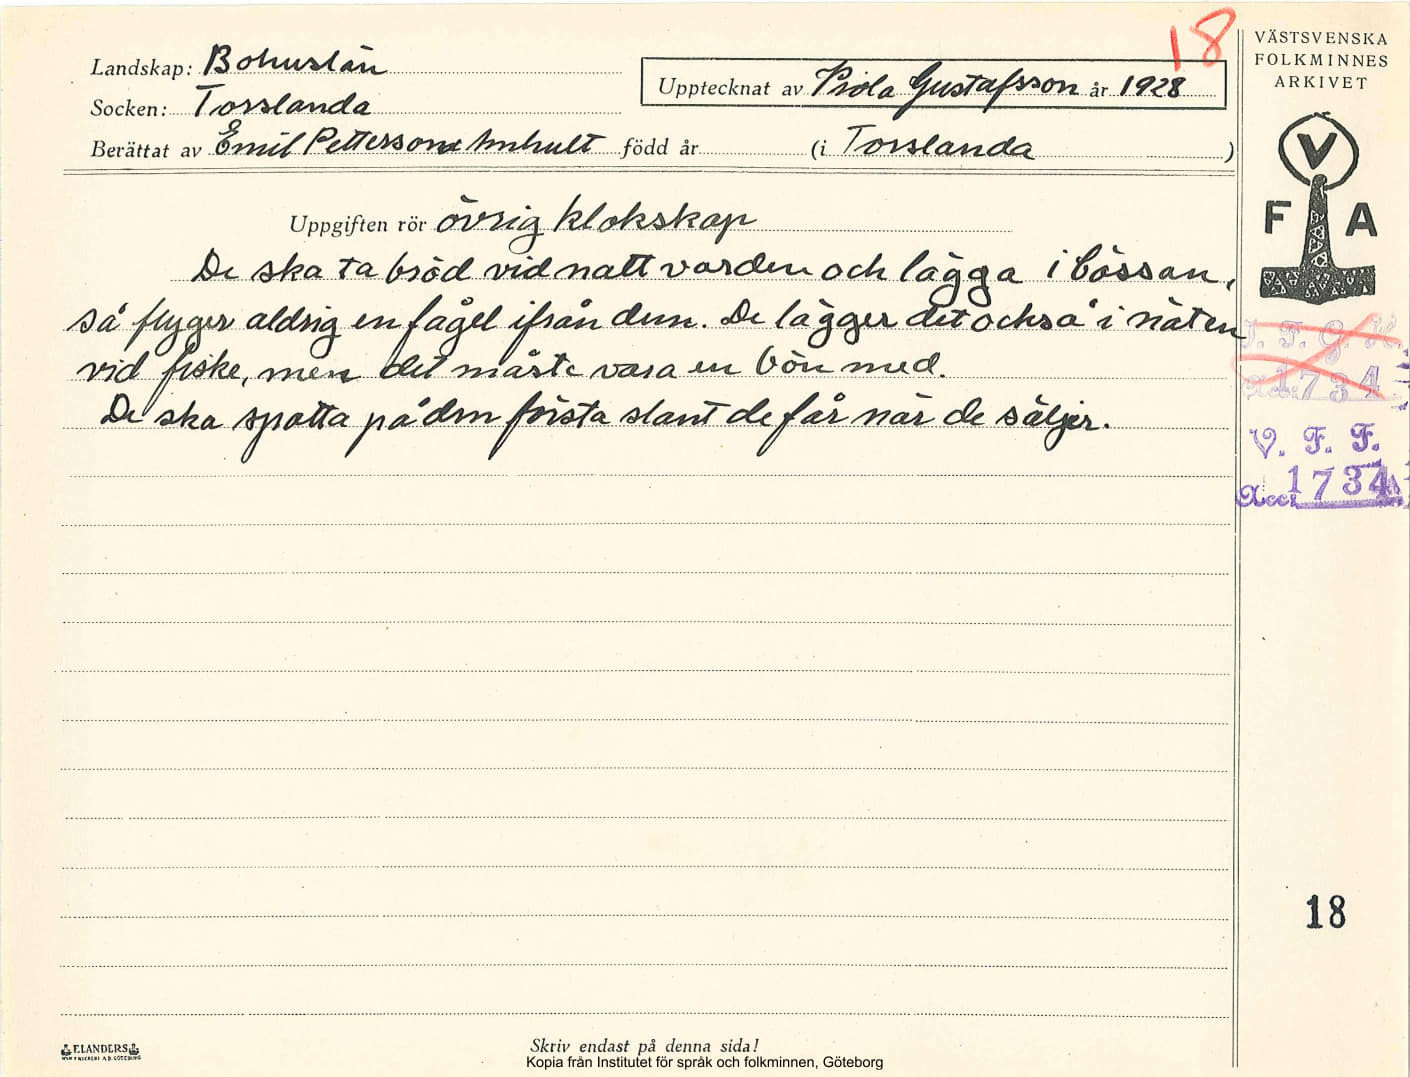 18
Landskap: Bohuslän
Upptecknat av Viola Gustafsson år 1928
Socken: Torslanda
Berättat av Emil Pettersson Amhult född år (i Torslanda)
VÄSTSVENSKA
FOLKMINNES
ARKIVET
V
F A
Uppgiften rör övrig klokskap
De ska ta bröd vid nattvarden och lägga i bössan,
så flyger aldrig en fågel ifrån dem. De lägger det också i näten
vid fiske, men det måste vara en bön med.
De ska spotta på den första slant de får när de säljer.
I. F. G. H.
Acc: 1734
V. F. F.
Acc: 1734
18
ELANDERS
Skriv endast på denna sida!
Kopia från Institutet för språk och folkminnen, Göteborg